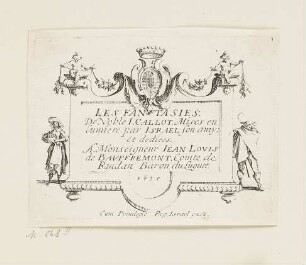 LES FANTASIES.
De Noble I. CALLOT. Mises en
lumiere par ISRAEL, son amy.
et dediees.
A Monseigneur IEAN LOUIS
de BAUFFREMONT, Conte de
Randan Baron du Luguet.
1635
Cum Privilegio Reg. Israel excu.